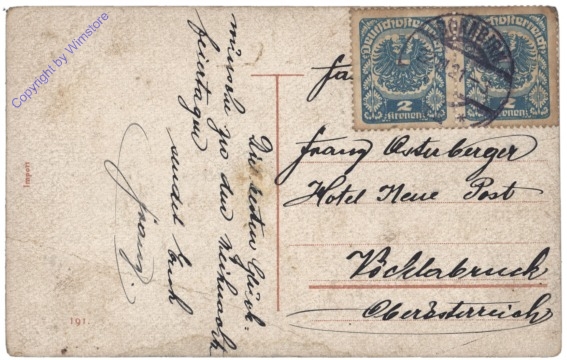 Copyright by Wimstore
Die besten Glück-
wünsche zu den Weihnachts
feiertagen
sendet Euch
Franz.
Import
191.
Deutschösterreich
2
Kronen
Deutschösterreich
2
Kronen
Franz Osterberger
Hotel Neue Post
Vöcklabruck
Oberösterreich